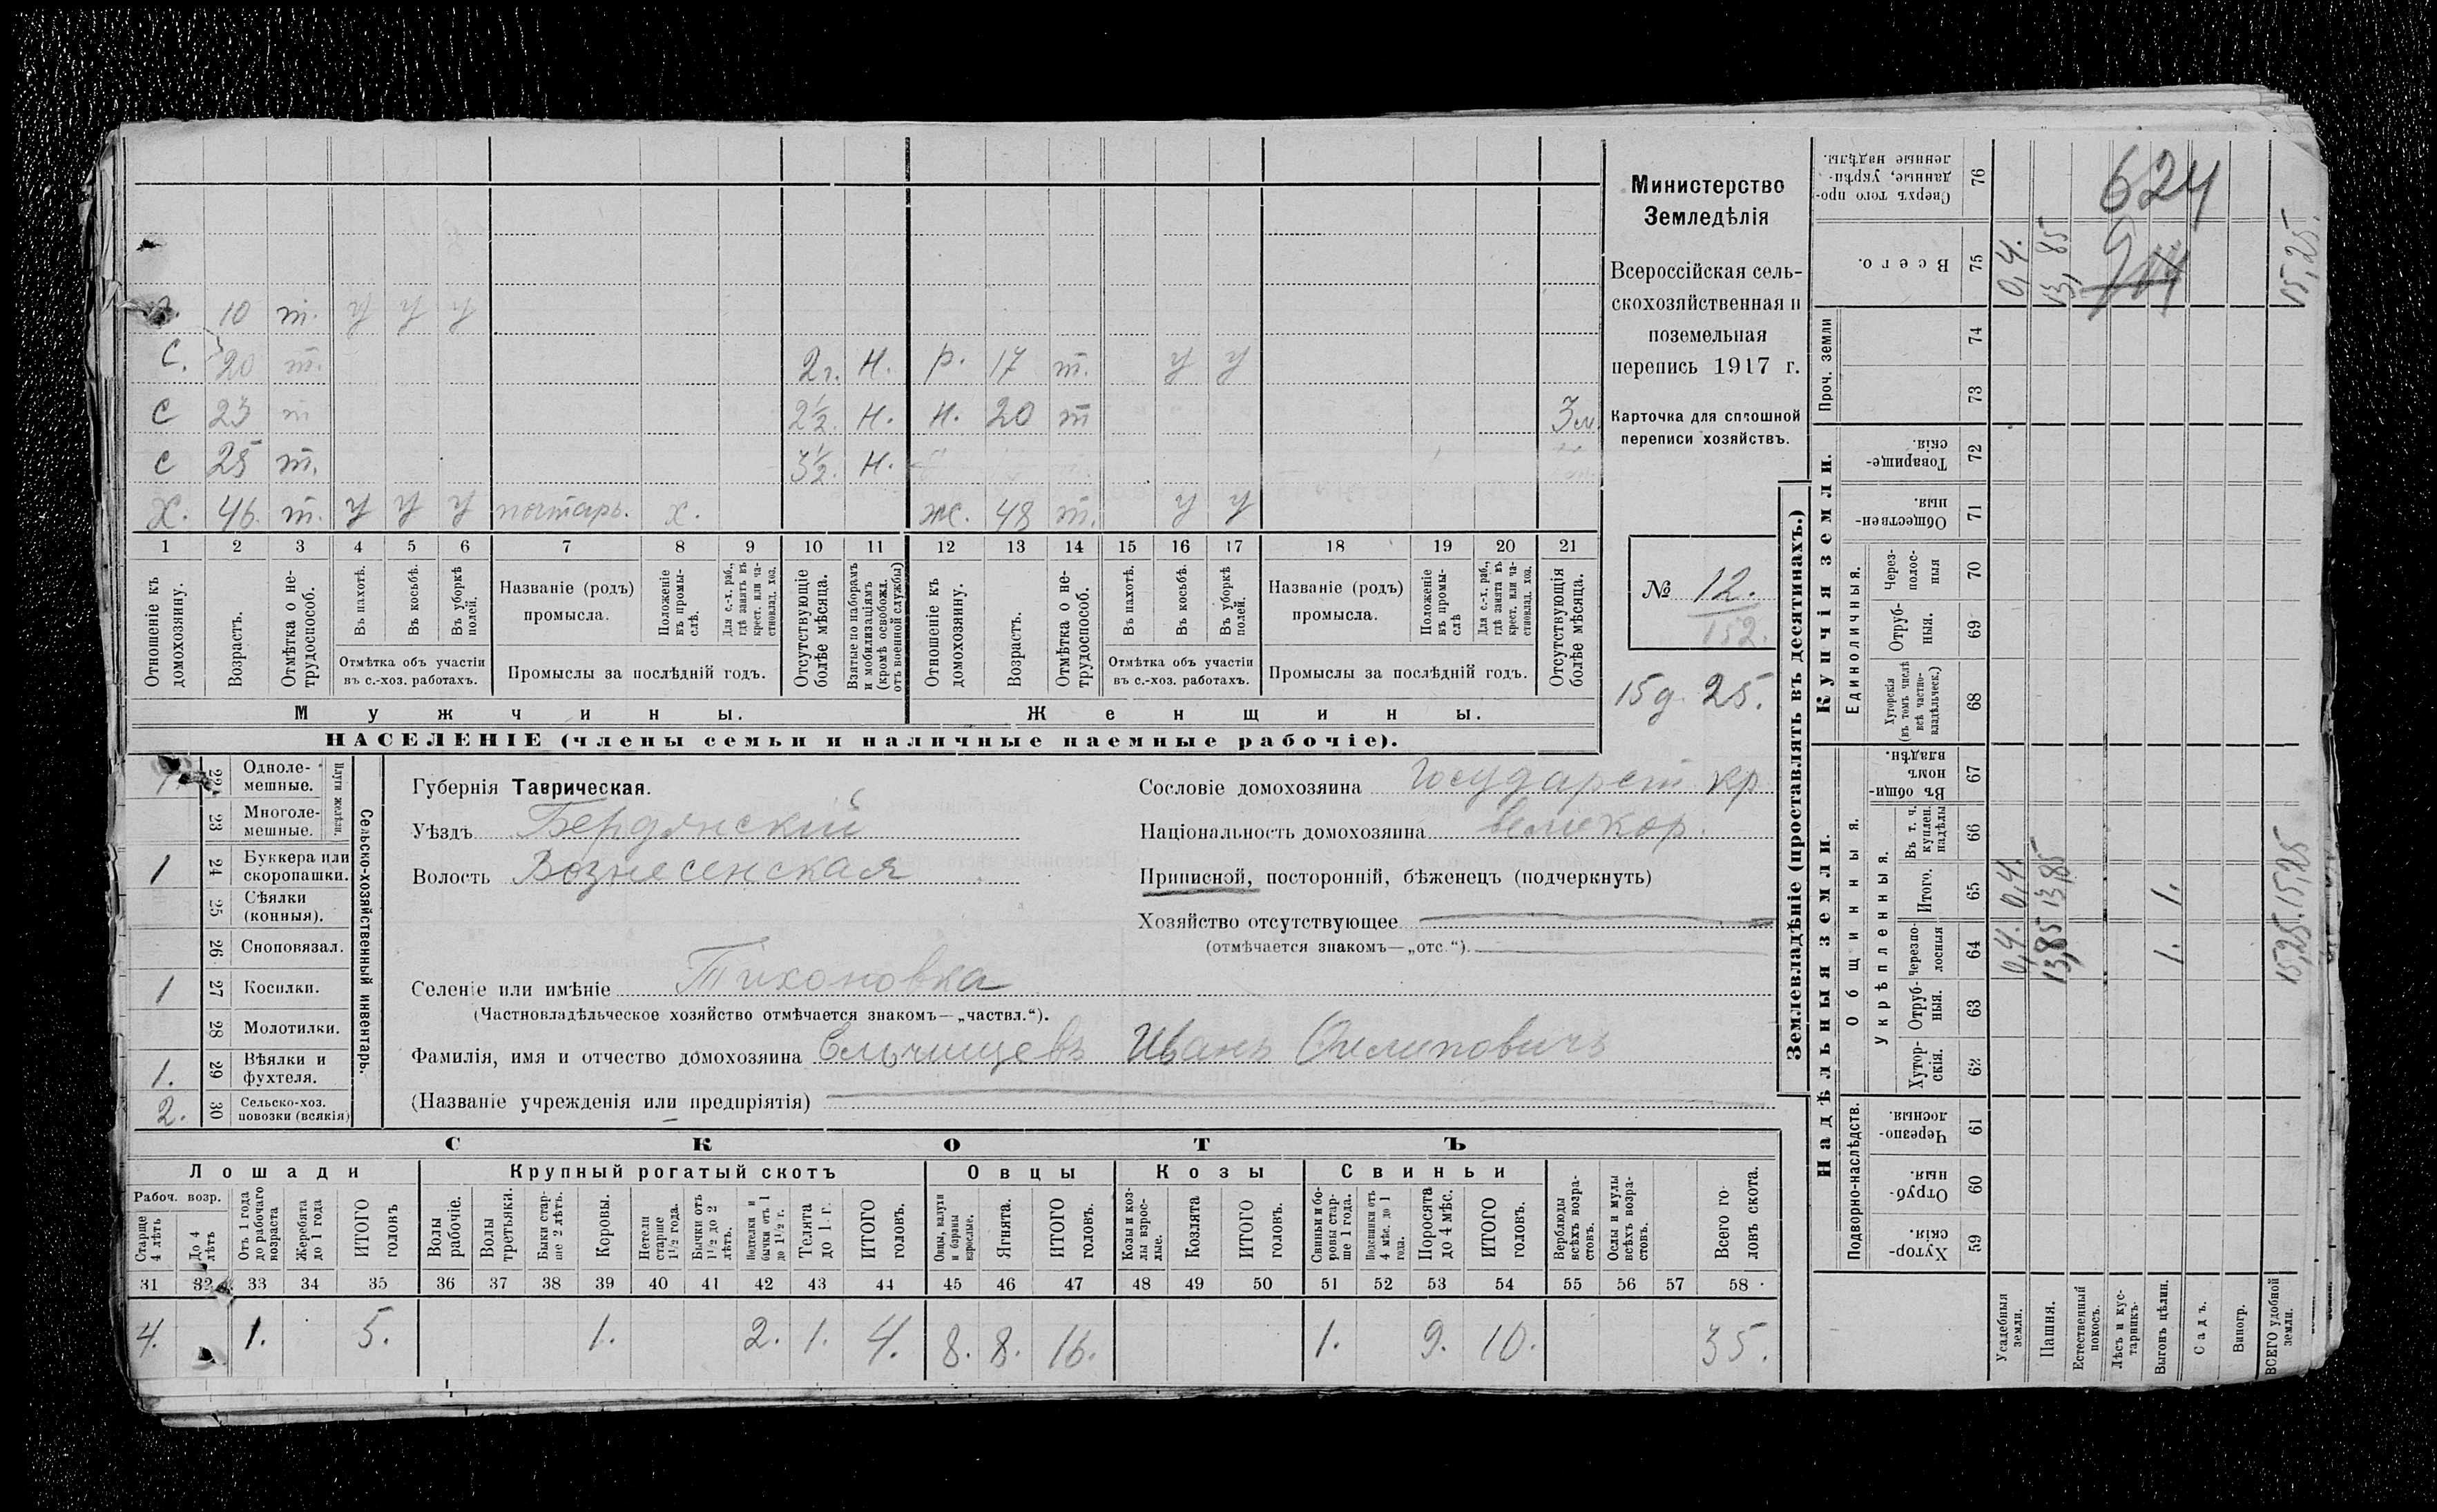 10 т. у у у
С. 20 т. 2 г. Н. р. 17 т. у у
С 23 т 2½. Н. Н. 20 т 3 м.
С 25 т. 3½ Н.
Х. 46. т. у у у х. ж. 48 т. у у
1 2 3 4 5 6 7 8 9 10 11 12 13 14 15 16 17 18 19 20 21
Отношеніе къ домохозяину.
Возрастъ.
Отмѣтка о нетрудоспособ.
Въ пахотѣ.
Въ косьбѣ.
Въ уборкѣ полей.
Отмѣтка объ участіи
въ с.-хоз. работахъ.
Названіе (родъ)
промысла.
Положеніе въ промыслѣ.
Для с.-х. раб., гдѣ занятъ въ крест. или частновлад. хоз.
Промыслы за послѣдній годъ.
Отсутствующіе болѣе мѣсяца.
Взятые по наборамъ и мобилизаціямъ (кромѣ освобожд. отъ военной службы)
Отношеніе къ домохозяину.
Возрастъ.
Отмѣтка о нетрудоспособ.
Въ пахотѣ.
Въ косьбѣ.
Въ уборкѣ полей.
Отмѣтка объ участіи
въ с.-хоз. работахъ.
Названіе (родъ)
промысла.
Положеніе въ промыслѣ
Для с.-х. раб., гдѣ занята въ крест. или частновлад. хоз.
Промыслы за послѣдній годъ.
Отсутствующія болѣе мѣсяца.
Мужчины. Женщины.
НАСЕЛЕНІЕ (члены семьи и наличные наемные рабочіе).
Министерство
Земледѣлія
Всероссійская сель-
скохозяйственная и
поземельная
перепись 1917 г.
Карточка для сплошной
переписи хозяйствъ.
№ 12.
152.
15 д. 25.
22 Одноле-
мешные.
23 Многоле-
мешные.
Плуги желѣзн.
1 24 Буккера или
скоропашки.
25 Сѣялки
(конныя).
26 Сноповязал.
1 27 Косилки.
28 Молотилки.
1. 29 Вѣялки и
фухтеля.
2. 30 Сельско-хоз.
повозки (всякія)
Сельско-хозяйственный инвентарь.
Губернія Таврическая.
Уѣздъ Бердянскій
Волость Вознесенская
Сословіе домохозяина Государст кр
Національность домохозяина великор.
Приписной, посторонній, бѣженецъ (подчеркнуть)
Хозяйство отсутствующее
(отмѣчается знакомъ—„отс.“).
Селеніе или имѣніе Тихоновка
(Частновладѣльческое хозяйство отмѣчается знакомъ—„частвл.“).
Фамилія, имя и отчество домохозяина Ельчищевъ Иванъ Филиповичъ
(Названіе учрежденія или предпріятія)
СКОТЪ
Лошади Крупный рогатый скотъ Овцы Козы Свиньи
Рабоч. возр.
Старше 4 лѣтъ
До 4 лѣтъ
Отъ 1 года до рабочаго возраста
Жеребята до 1 года
ИТОГО головъ
Волы рабочіе.
Волы третьяки.
Быки старше 2 лѣтъ.
Коровы.
Нетели старше 1½ года.
Бычки отъ 1½ до 2 лѣтъ.
Подтелки и бычки отъ 1 до 1½ г.
Телята до 1 г.
ИТОГО головъ.
Овцы, валухи и бараны взрослые.
Ягнята.
ИТОГО головъ.
Козы и козлы взрослые.
Козлята
ИТОГО головъ.
Свиньи и боровы старше 1 года.
Подсвинки отъ 4 мѣс. до 1 года.
Поросята до 4 мѣс.
ИТОГО головъ.
Верблюды всѣхъ возрастовъ.
Ослы и мулы всѣхъ возрастовъ.
Всего головъ скота.
31 32 33 34 35 36 37 38 39 40 41 42 43 44 45 46 47 48 49 50 51 52 53 54 55 56 57 58
4. 1. 5. 1. 2. 1. 4. 8. 8. 16. 1. 9. 10. 35.
Землевладѣніе (проставлять въ десятинахъ.)
Надѣльныя земли. Купчія земли. Проч. земли
Подворно-наслѣдств.
Общинныя.
Укрѣпленныя.
Единоличныя.
Сверхъ того проданные, укрѣпленные надѣлы. 76
Всего. 75 0,4. 13,85 15,25.
74
73
Товарищескія. 72
Общественныя 71
Черезполосныя 70
Отрубныя. 69
Хуторскія (въ томъ числѣ всѣ частновладѣльческ.) 68
Въ общинномъ владѣн. 67
Въ т. ч. куплен. надѣлы 66
Итого. 65 0,4. 13,85 1. 15,25
Черезполосныя 64 0,4. 13,85 1. 15,25.
Отрубныя. 63
Хуторскія. 62
Черезполосныя. 61
Отрубныя. 60
Хуторскія. 59
Усадебныя земли.
Пашня.
Естественный покосъ.
Лѣсъ и кустарникъ.
Выгонъ цѣлин.
Садъ.
Виногр.
ВСЕГО удобной земли.
624